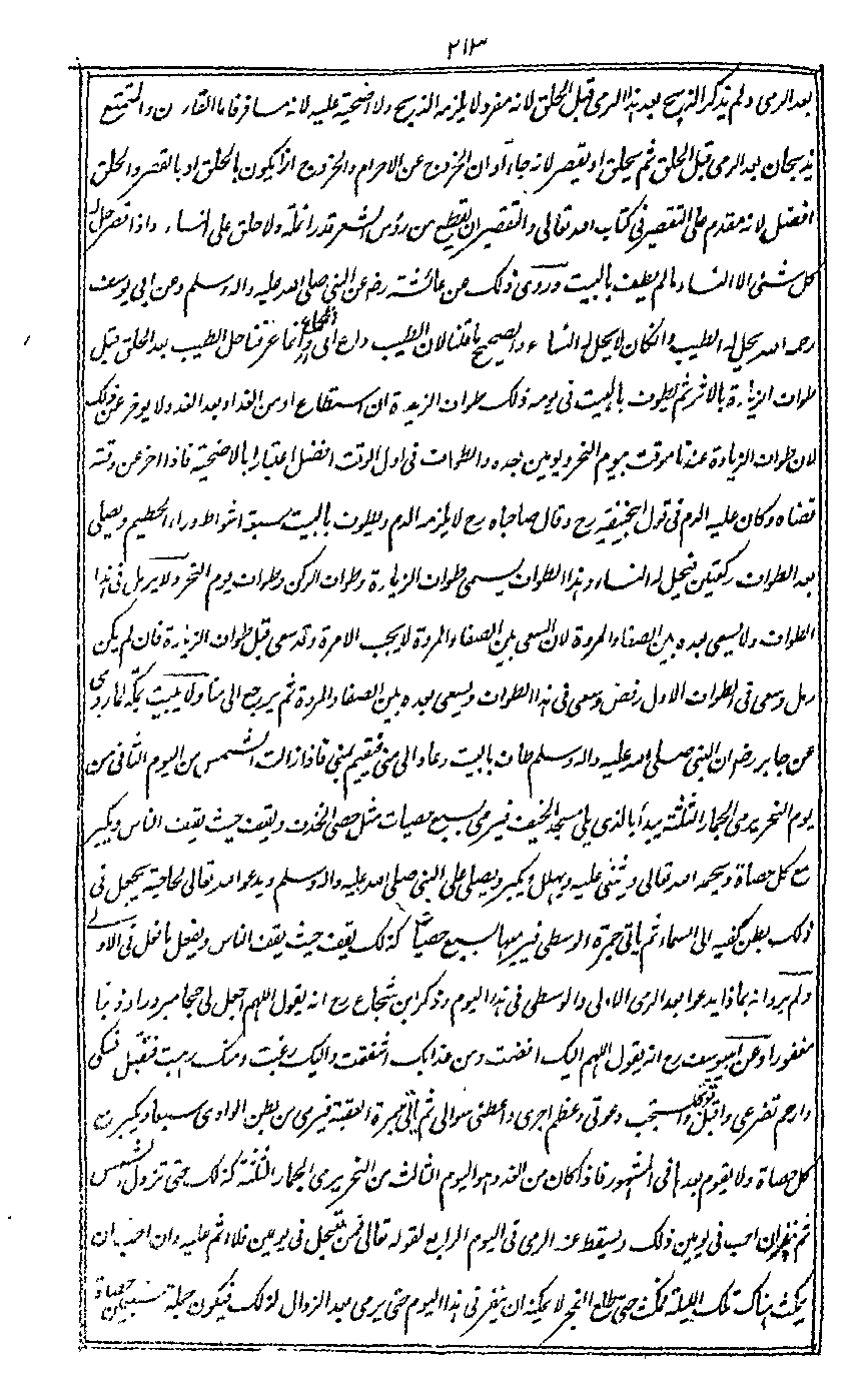 ٢١٣
بعد الرمى ولم يذكر الذبح بعد هذا الرمى قبل الحلق لانه مفرد لا يلزمه الذبح ولا اضحية عليه لانه مسافر فاما القارن والمتمتع
يذبحان بعد الرمى قبل الحلق ثم يحلق او يقصر لانه جاء اوان الخروج عن الاحرام والخروج انما يكون بالحلق او بالقصر والحلق
افضل لانه مقدم على التقصير فى كتاب الله تعالى والتقصير ان يقطع من رؤس الشعر قدر انملة ولا حلق على النساء واذا قصر حل له
كل شئى الا النساء مالم يطف بالبيت وروى ذلك عن عائشة رضہ عن النبى صلى الله عليه واله وسلم وعن ابى يوسف
رحمه الله يحل له الطيب وانكان لا يحل له النساء والصحيح ما قلنا لان الطيب داع الى الجماع وانما عرفنا حل الطيب بعد الحلق قبل
طواف الزيارة بالاثر ثم يطوف بالبيت فى يومه ذلك طواف الزيارة ان استطاع او من الغد او بعد الغد ولا يوخر عن ذلك
لان طواف الزيارة عندنا موقت بيوم النحر ويومين بعده والطواف فى اول الوقت افضل اعتبارا بالاضحية فاذا اخر عن وقته
قضاه وكان عليه الدم فى قول ابيحنيفة رح وقال صاحباه رح لا يلزمه الدم ويطوف بالبيت سبعة اشواط وراء الحطيم ويصلى
بعد الطواف ركعتين فيحل له النساء وهذا الطواف يسمى طواف الزيارة وطواف الركن وطواف يوم النحر ولا يرمل فى هذا
الطواف ولا يسعى بعده بين الصفا والمروة لان السعى بين الصفا والمروة لا يجب الا مرة وقد سعى قبل طواف الزيارة فان لم يكن
رمل وسعى فى الطواف الاول رفض وسعى فى هذا الطواف ويسعى بعده بين الصفا والمروة ثم يرجع الى منا ولا يبيت بمكة لما روى
عن جابر رضہ ان النبى صلى الله عليه واله وسلم طاف بالبيت وعاد الى منى فيقيم بمنى فاذا زالت الشمس من اليوم الثانى من
يوم النحر يرمى الجمار الثلثة يبدأ بالذى يلى مسجد الخيف فيرمى بسبع حصيات مثل حصى الخذف ويقف حيث يقف الناس ويكبر
مع كل حصاة ويحمد الله تعالى ويثنى عليه ويهلل ويكبر ويصلى على النبى صلى الله عليه واله وسلم ويدعو الله تعالى لحاجته يجعل فى
ذلك بطن كفيه الى السماء ثم ياتى جمرة الوسطى فيرميها بسبع حصيات كذلك يقف حيث يقف الناس ويفعل ما فعل فى الاولے
ولم يرو انه بماذا يدعو بعد الرمى الاولى والوسطى فى هذا اليوم وذكر ابن شجاع رح انه يقول اللهم اجعل لى حجا مبرورا وذنبا
مغفورا وعن ابيوسف رح انه يقول اللهم اليك افضت ومن عذابك اشفقت واليك رغبت ومنك رهبت فتقبل نسكى
وارحم تضرعى واقبل توبتى واستجب دعوتى وعظم اجرى واعطنى سوالى ثم ياتى جمرة العقبة فيرمى من بطن الوادى سبعا ويكبر مع
كل حصاة ولا يقوم بعدها فى المشهور فاذا كان من الغد وهو اليوم الثالث من النحر يرمى الجمار الثلثة كذلك حتى تزول الشمس
ثم ينفر ان احب فى يومين ذلك ويسقط عنه الرمى فى اليوم الرابع لقوله تعالى فمن تعجل فى يومين فلا اثم عليه وان احب ان
يمكث هناك تلك الليلة يمكث حتى يطلع الفجر لا يمكنه ان ينفر فى هذا اليوم حتى يرمى بعد الزوال لذلك فيكون جملة سبعين حصاة